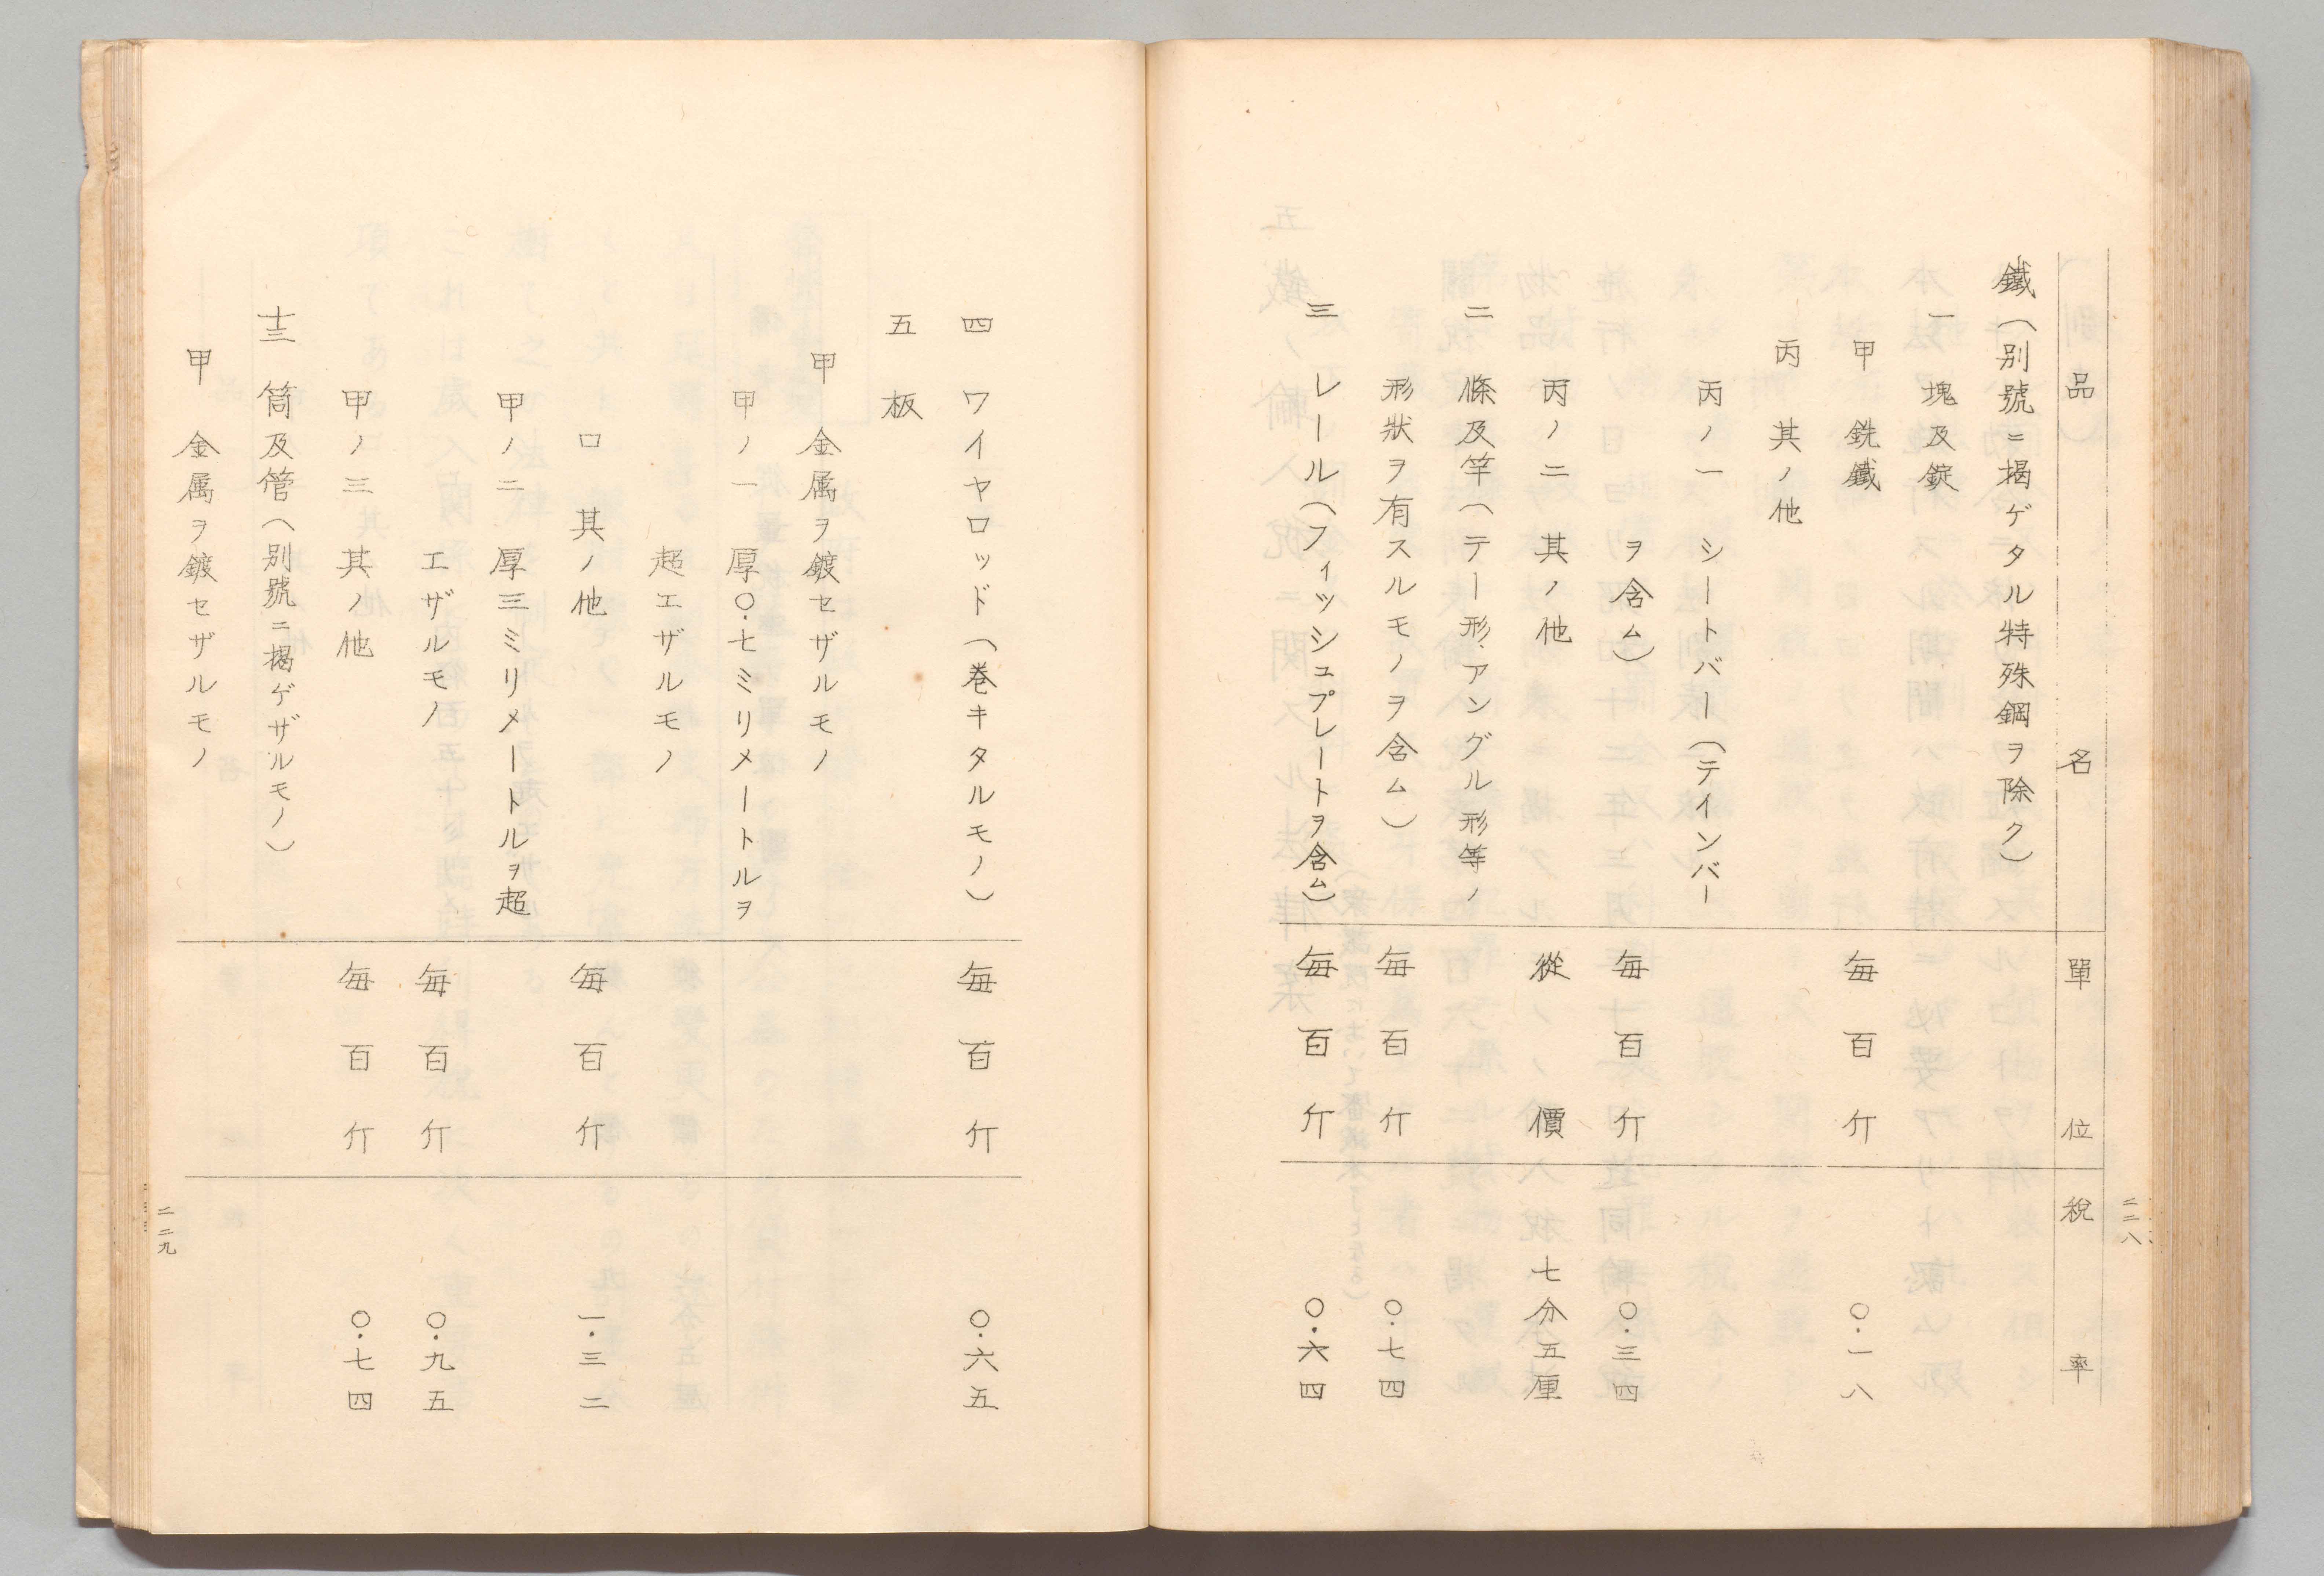 二二八
品名 單位 稅率
鐵（別號ニ揭ゲタル特殊鋼ヲ除ク）
一 塊及錠
甲 銑鐵 每百斤 〇・一八
丙 其ノ他
丙ノ一 シートバー（テインバー
ヲ含ム） 每百斤 〇・三四
丙ノ二 其ノ他 從價 七分五厘
二 條及竿（テー形、アングル形等ノ
形狀ヲ有スルモノヲ含ム） 每百斤 〇・七四
三 レール（フィッシュプレートヲ含ム） 每百斤 〇・六四
四 ワイヤロッド（巻キタルモノ） 每百斤 〇・六五
五 板
甲 金属ヲ鍍セザルモノ
甲ノ一 厚〇・七ミリメートルヲ
超エザルモノ
ロ 其ノ他 每百斤 一・三二
甲ノ二 厚三ミリメートルヲ超
エザルモノ 每百斤 〇・九五
甲ノ三 其ノ他 每百斤 〇・七四
十三 筒及管（別號ニ揭ゲザルモノ）
甲 金属ヲ鍍セザルモノ
二二九